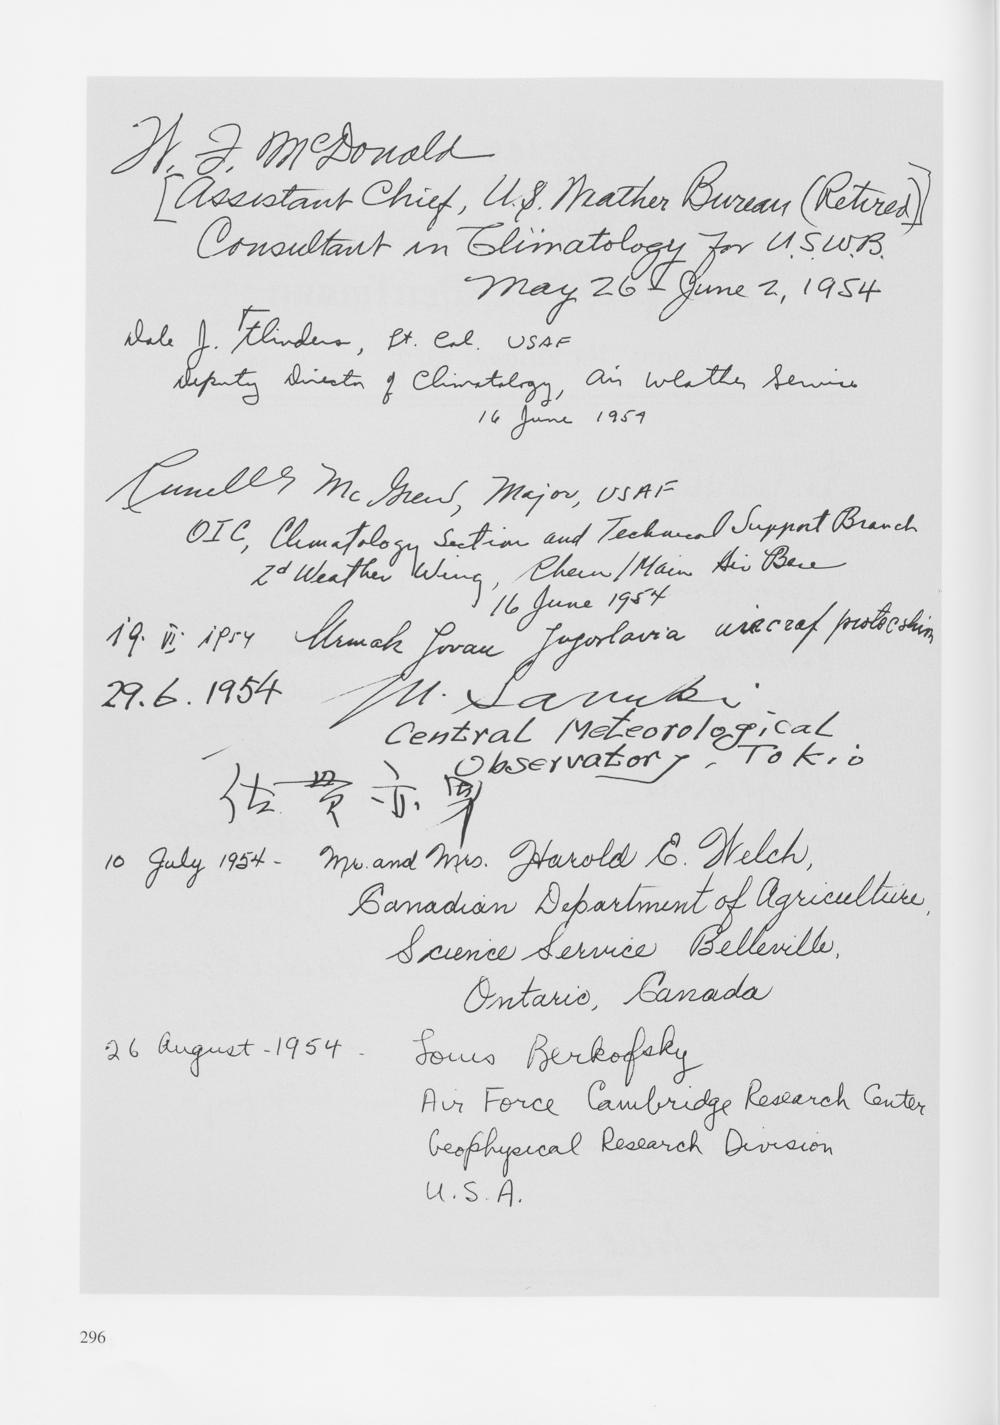 W. F. McDonald
[Assistant Chief, U.S. Weather Bureau (Retired)]
Consultant in Climatology for U.S.W.B.
May 26 - June 2, 1954
Dale J. Flinders, Lt. Col. USAF
Deputy Director of Climatology, Air Weather Service
16 June 1954
McGrew, Major, USAF
OIC, Climatology Section and Technical Support Branch
2d Weather Wing, Rhein/Main Air Base
16 June 1954
19. VI. 1954 Jovan Jugoslavia
29.6.1954 M. Sanuki
Central Meteorological
Observatory, Tokio
佐貫亦男
10 July 1954 - Mr. and Mrs. Harold E. Welch,
Canadian Department of Agriculture,
Science Service Belleville,
Ontario, Canada
26 August - 1954 - Louis Berkofsky
Air Force Cambridge Research Center
Geophysical Research Division
U.S.A.
296